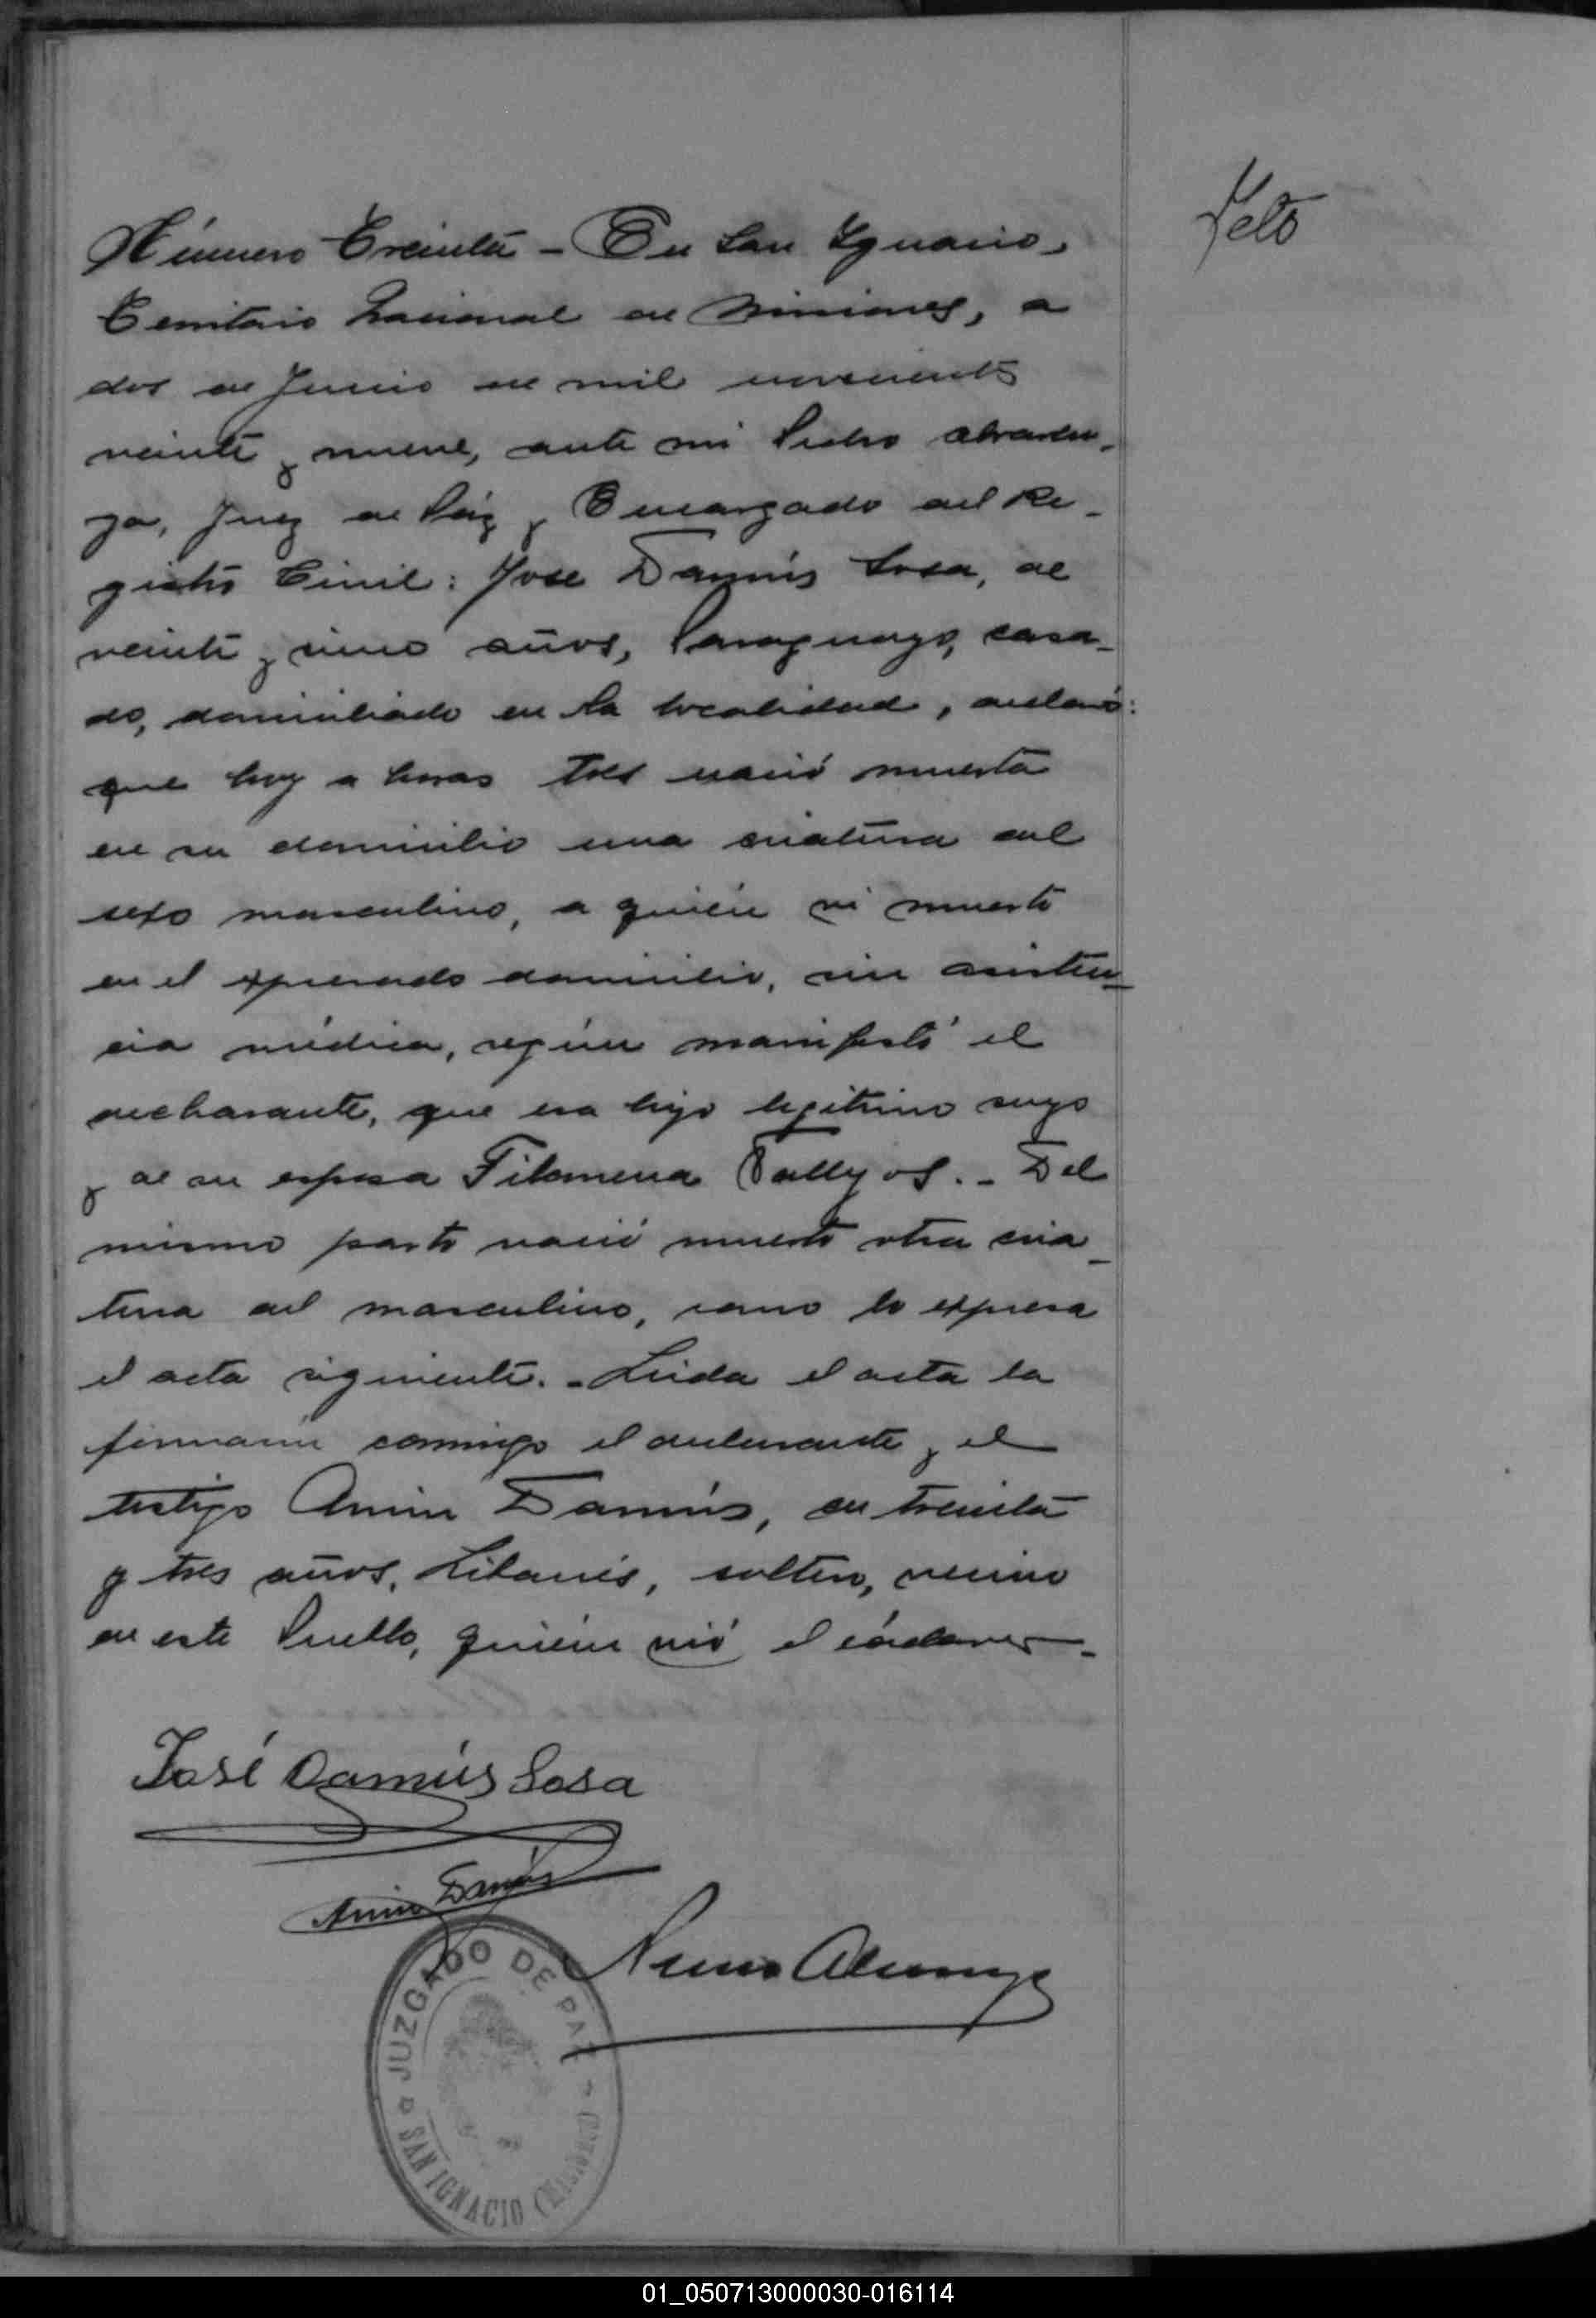 Feto
Número Treinta - En San Ygnacio,
Territorio Nacional de Misiones, a
dos de Junio de mil novecientos
veinte y nueve, ante mi Pedro
ga, Juez de Paz y Encargado del Re-
gistro Civil: Jose Damús Sosa, de
veinte y cinco años, Paraguayo, casa-
do, domiciliado en la localidad, declaró:
que hoy a horas tres nació muerta
en su domicilio una criatura del
sexo masculino, a quién vi muerto
en el expresado domicilio, sin asisten-
cia médica, según manifestó el
declarante, que era hijo legitimo suyo
y de su esposa Filomena .- Del
mismo parto nació muerto otra cria-
tura del masculino, como lo expresa
el acta siguiente.- Leida el acta la
firmaron conmigo el declarante y el
testigo Amin Damús, de treinta
y tres años, Libanés, soltero, vecino
de este Pueblo, quién vió el cádaver-
José Damús Sosa
Amin Damús
JUZGADO DE PAZ
SAN IGNACIO (MISIONES)
01_050713000030-016114